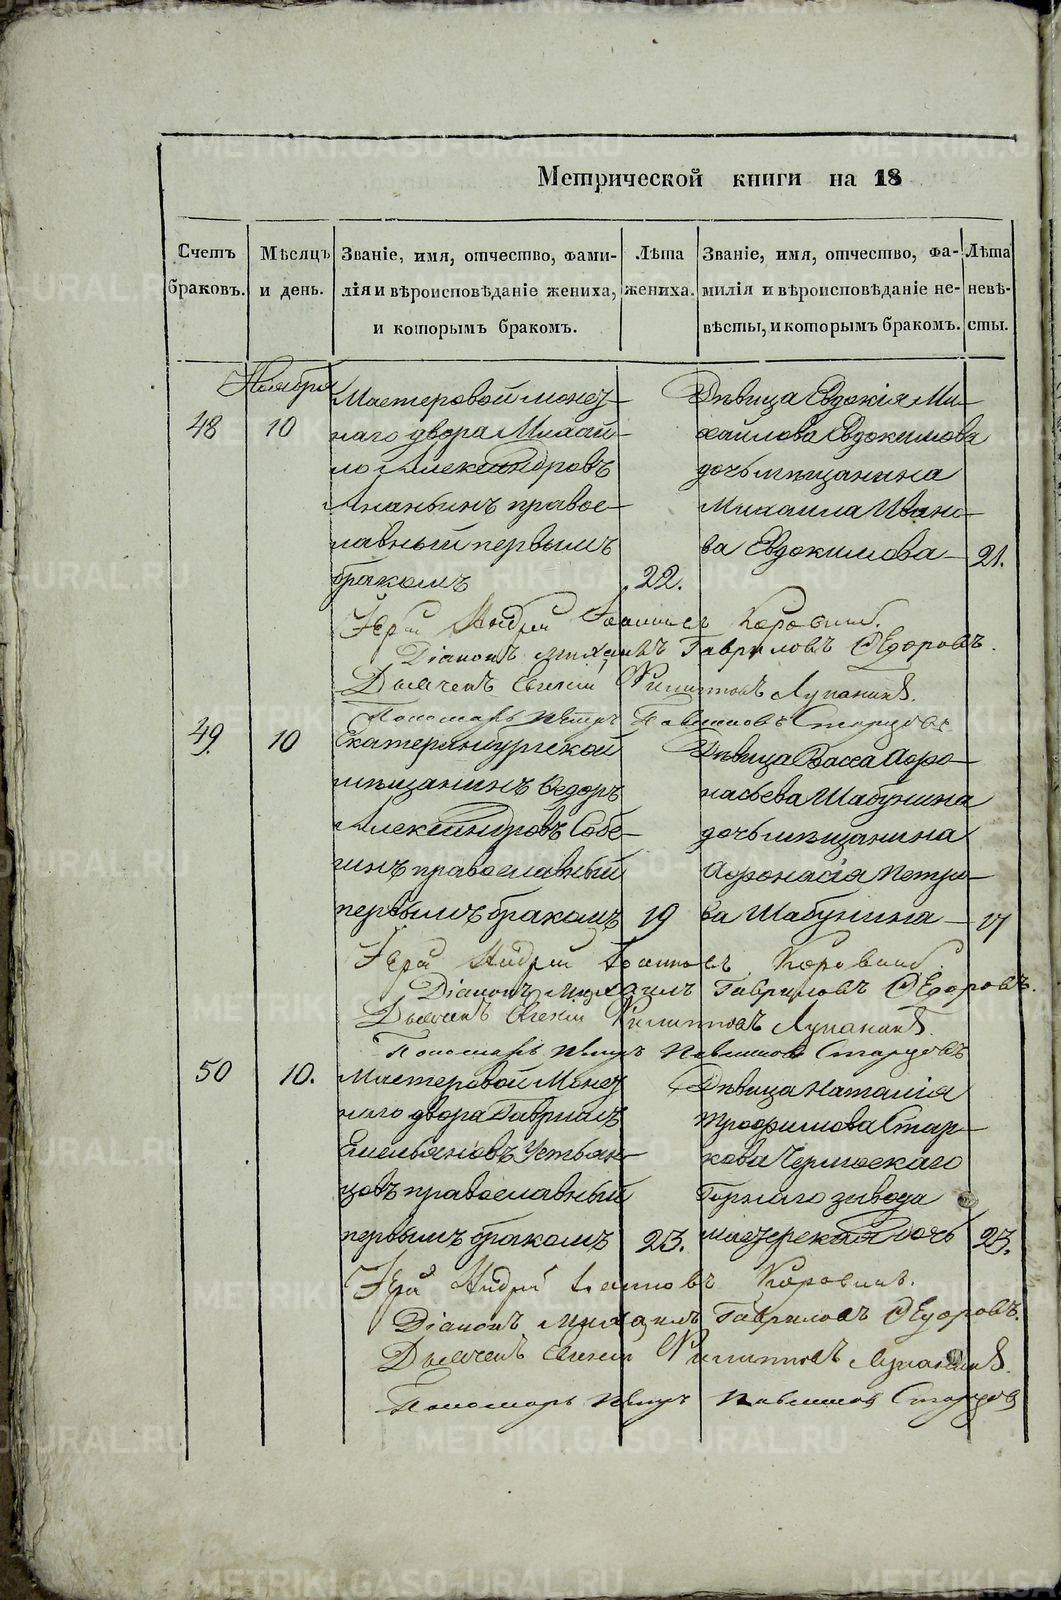 Метрической книги на 18
Счетъ браковъ.
Мѣсяцъ и день.
Званіе, имя, отчество, фами-
лія и вѣроисповѣданіе жениха,
и которымъ бракомъ.
Лѣта жениха.
Званіе, имя, отчество, фа-
милія и вѣроисповѣданіе не-
вѣсты, и которымъ бракомъ.
Лѣта невѣ-
сты.
Ноября
48
10
Мастеровой монет-
наго двора Михай-
ло Александровъ
Ананьинъ правос-
лавный первымъ
бракомъ
22.
Дѣвица Евдокія Ми-
хайлова Евдокимова
дочь мѣщанина
Михаила Ивано-
ва Евдокимова
21.
Іерей Андрей Іоанновъ Коровинъ.
Діаконъ Михаилъ Гавриловъ Ѳедоровъ.
Дьячекъ Евгений Филипповъ Лупанинъ.
Пономарь Петръ Павлиновъ Старцовъ
49
10
Екатеринбургской
мѣщанинъ Ѳедоръ
Александровъ Собе-
нинъ православный
первымъ бракомъ
19
Дѣвица Васса Афо-
насьева Шабунина
дочь мѣщанина
Афонасія Петро-
ва Шабунина
17
Іерей Андрей Іоанновъ Коровинъ.
Діаконъ Михаилъ Гавриловъ Ѳедоровъ.
Дьячекъ Евгений Филипповъ Лупанинъ.
Пономарь Петръ Павлиновъ Старцовъ
50
10.
Мастеровой Монет
наго двора Гавриилъ
Емельяновъ Устьян-
цовъ православный
первымъ бракомъ
23.
Дѣвица Наталія
Трофимова Стар-
кова Чермоскаго
Горнаго завода
мастерская дочь
23.
Іерей Андрей Іоанновъ Коровинъ.
Діаконъ Михаилъ Гавриловъ Ѳедоровъ.
Дьячекъ Евгений Филипповъ Лупанинъ.
Пономарь Петръ Павлиновъ Старцовъ
METRIKI.GASO-URAL.RU